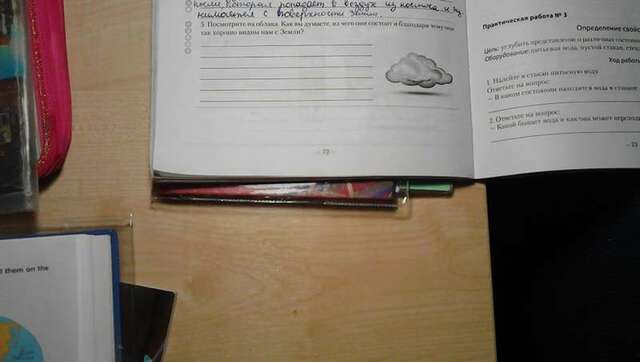 попадает в воздух из
с поверхности Земли.
3. Посмотрите на облака. Как вы думаете, из чего они состоят и благодаря чему мы
так хорошо видим их с Земли?
- 22 -
Практическая работа № 3
Определение свойс
Цель: углубить представление о различных состояни
Оборудование: питьевая вода, пустой стакан,
Ход работы
1. Налейте в стакан питьевую воду.
Ответьте на вопрос:
– В каком состоянии находится вода в стакане
2. Ответьте на вопрос:
– Какой бывает вода и как она может переходи
- 23
them on the